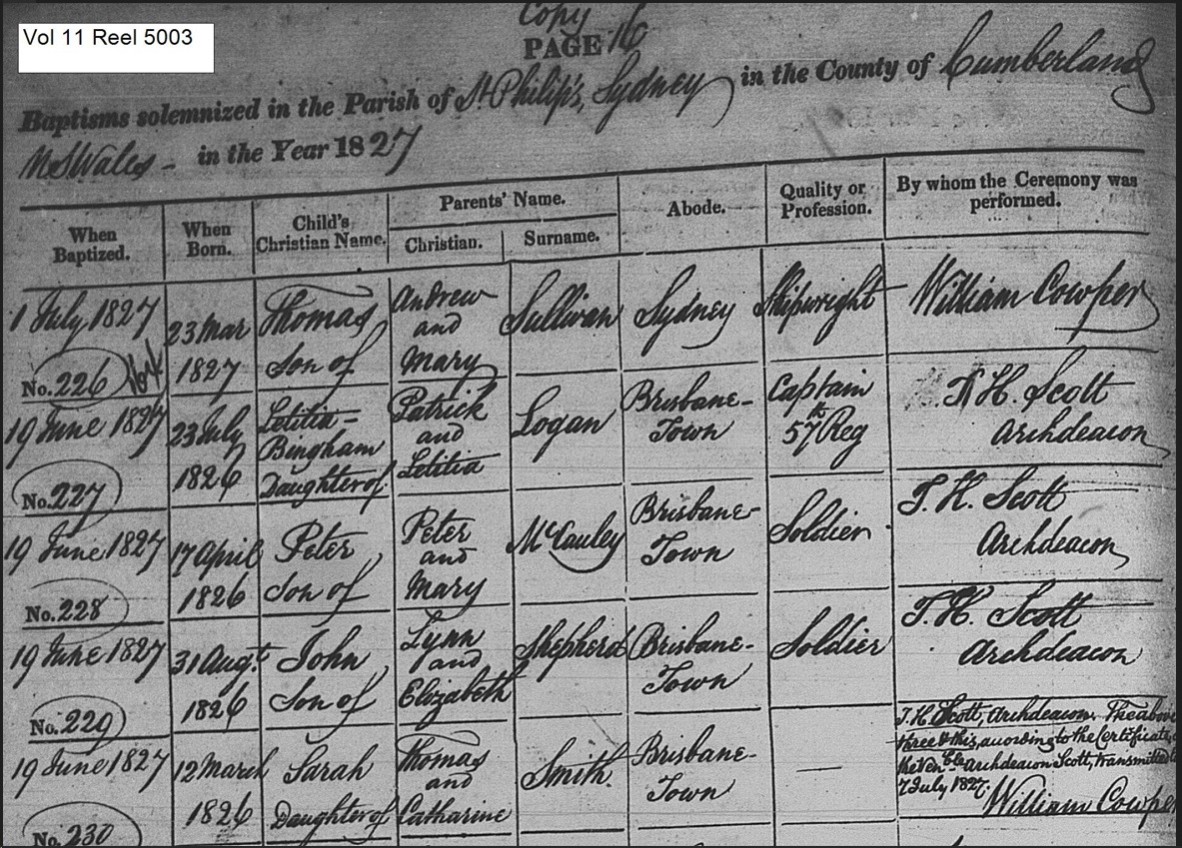 Vol 11 Reel 5003
Copy
PAGE 16
Baptisms solemnized in the Parish of St Philip's, Sydney in the County of Cumberland
N S Wales - in the Year 1827
When Baptized.
When Born.
Child's Christian Name.
Parents' Name.
Christian.
Surname.
Abode.
Quality or Profession.
By whom the Ceremony was performed.
1 July 1827
No. 226
23 Mar
1827
Thomas
Son of
Andrew
and
Mary
Sullivan
Sydney
Shipwright
William Cowper
19 June 1827
No. 227
23 July
1826
Letitia-
Bingham
Daughter of
Patrick
and
Letitia
Logan
Brisbane-
Town
Captain
57th Reg
T. H. Scott
Archdeacon
19 June 1827
No. 228
17 April
1826
Peter
Son of
Peter
and
Mary
McCauley
Brisbane-
Town
Soldier
T. H. Scott
Archdeacon
19 June 1827
No. 229
31 Augt
1826
John
Son of
Lynn
and
Elizabeth
Shepherd
Brisbane-
Town
Soldier
T. H. Scott
Archdeacon
19 June 1827
No. 230
12 March
1826
Sarah
Daughter of
Thomas
and
Catharine
Smith
Brisbane-
Town
—
T. H. Scott, Archdeacon. The above
three & this, according to the Certificate,
the Venble Archdeacon Scott, transmitted
7 July 1827.
William Cowper